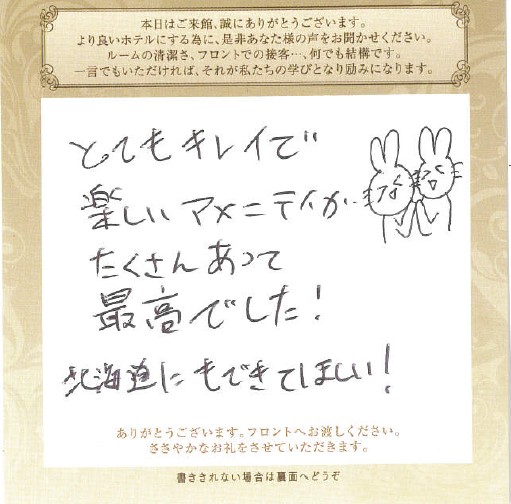 本日はご来館、誠にありがとうございます。
より良いホテルにする為に、是非あなた様の声をお聞かせください。
ルームの清潔さ、フロントでの接客…、何でも結構です。
一言でもいただければ、それが私たちの学びとなり励みになります。
とてもキレイで
楽しいアメニティが
たくさんあって
最高でした!
北海道にもできてほしい!
ありがとうございます。フロントへお渡しください。
ささやかなお礼をさせていただきます。
書きされない場合は裏面へどうぞ